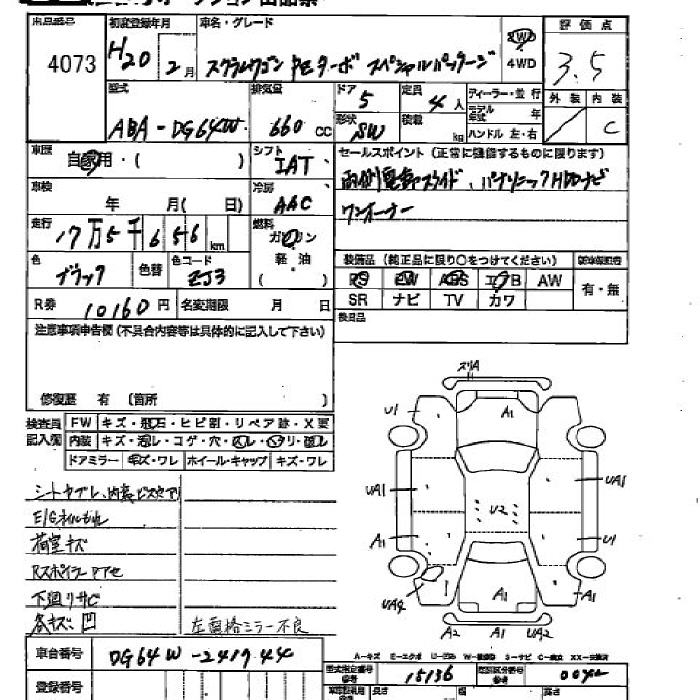 出品番号 初度登録年月 車名・グレード 評価点
4073 H20 2月 スクラムワゴン PZターボ スペシャルパッケージ 2WD 4WD 3.5
型式 排気量 ドア 5 定員 4人 ディーラー・並行 外装 内装
ABA-DG64W 660 CC 形状 SW 積載 kg モデル年式 年 C
ハンドル 左・右
車歴 自家用・( ) シフト IAT セールスポイント (正常に機能するものに限ります)
車検 年 月( 日) 冷房 AAC 両側電動スライド、パナソニックHDDナビ
ワンオーナー
走行 17万5千656km 燃料 ガソリン
軽・油
( )
装備品 (純正品に限り○をつけてください)
色 ブラック 色替 色コード ZJ3 PS PW ABS エアB AW 有・無
R券 10160円 名変期限 月 日 SR ナビ TV カワ
注意事項申告欄(不具合内容等は具体的に記入して下さい) 後日品
修復歴 有 (箇所 )
検査員記入欄 FW キズ・飛石・ヒビ割・リペア跡・X要
内装 キズ・汚レ・コゲ・穴・スレ・ヘタリ・破レ
ドアミラー キズ・ワレ ホイール・キャップ キズ・ワレ
シートヨゴレ、内装ビス穴アリ
E/Gオイルもれ
荷室キズ
下廻りサビ
各キズ凹 左直格ミラー不良
スリA
U1 A1
UA1 UA1
U2
A1 U1
UA4 A1 A1
A2 A1 UA2
A-キズ E-エクボ U-凹み W-補修跡 S-サビ C-腐食 XX-交換済
車台番号 DG64W-241944 型式指定番号 参考 15136 類別区分番号 参考 0042
登録番号 長さ 幅 高さ